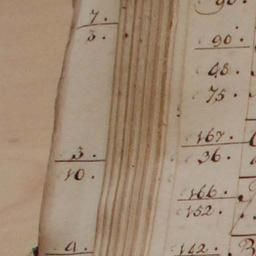 7.
3.
3.
10.
4.
90.
90.
68.
75.
167.
36.
166.
152.
142.